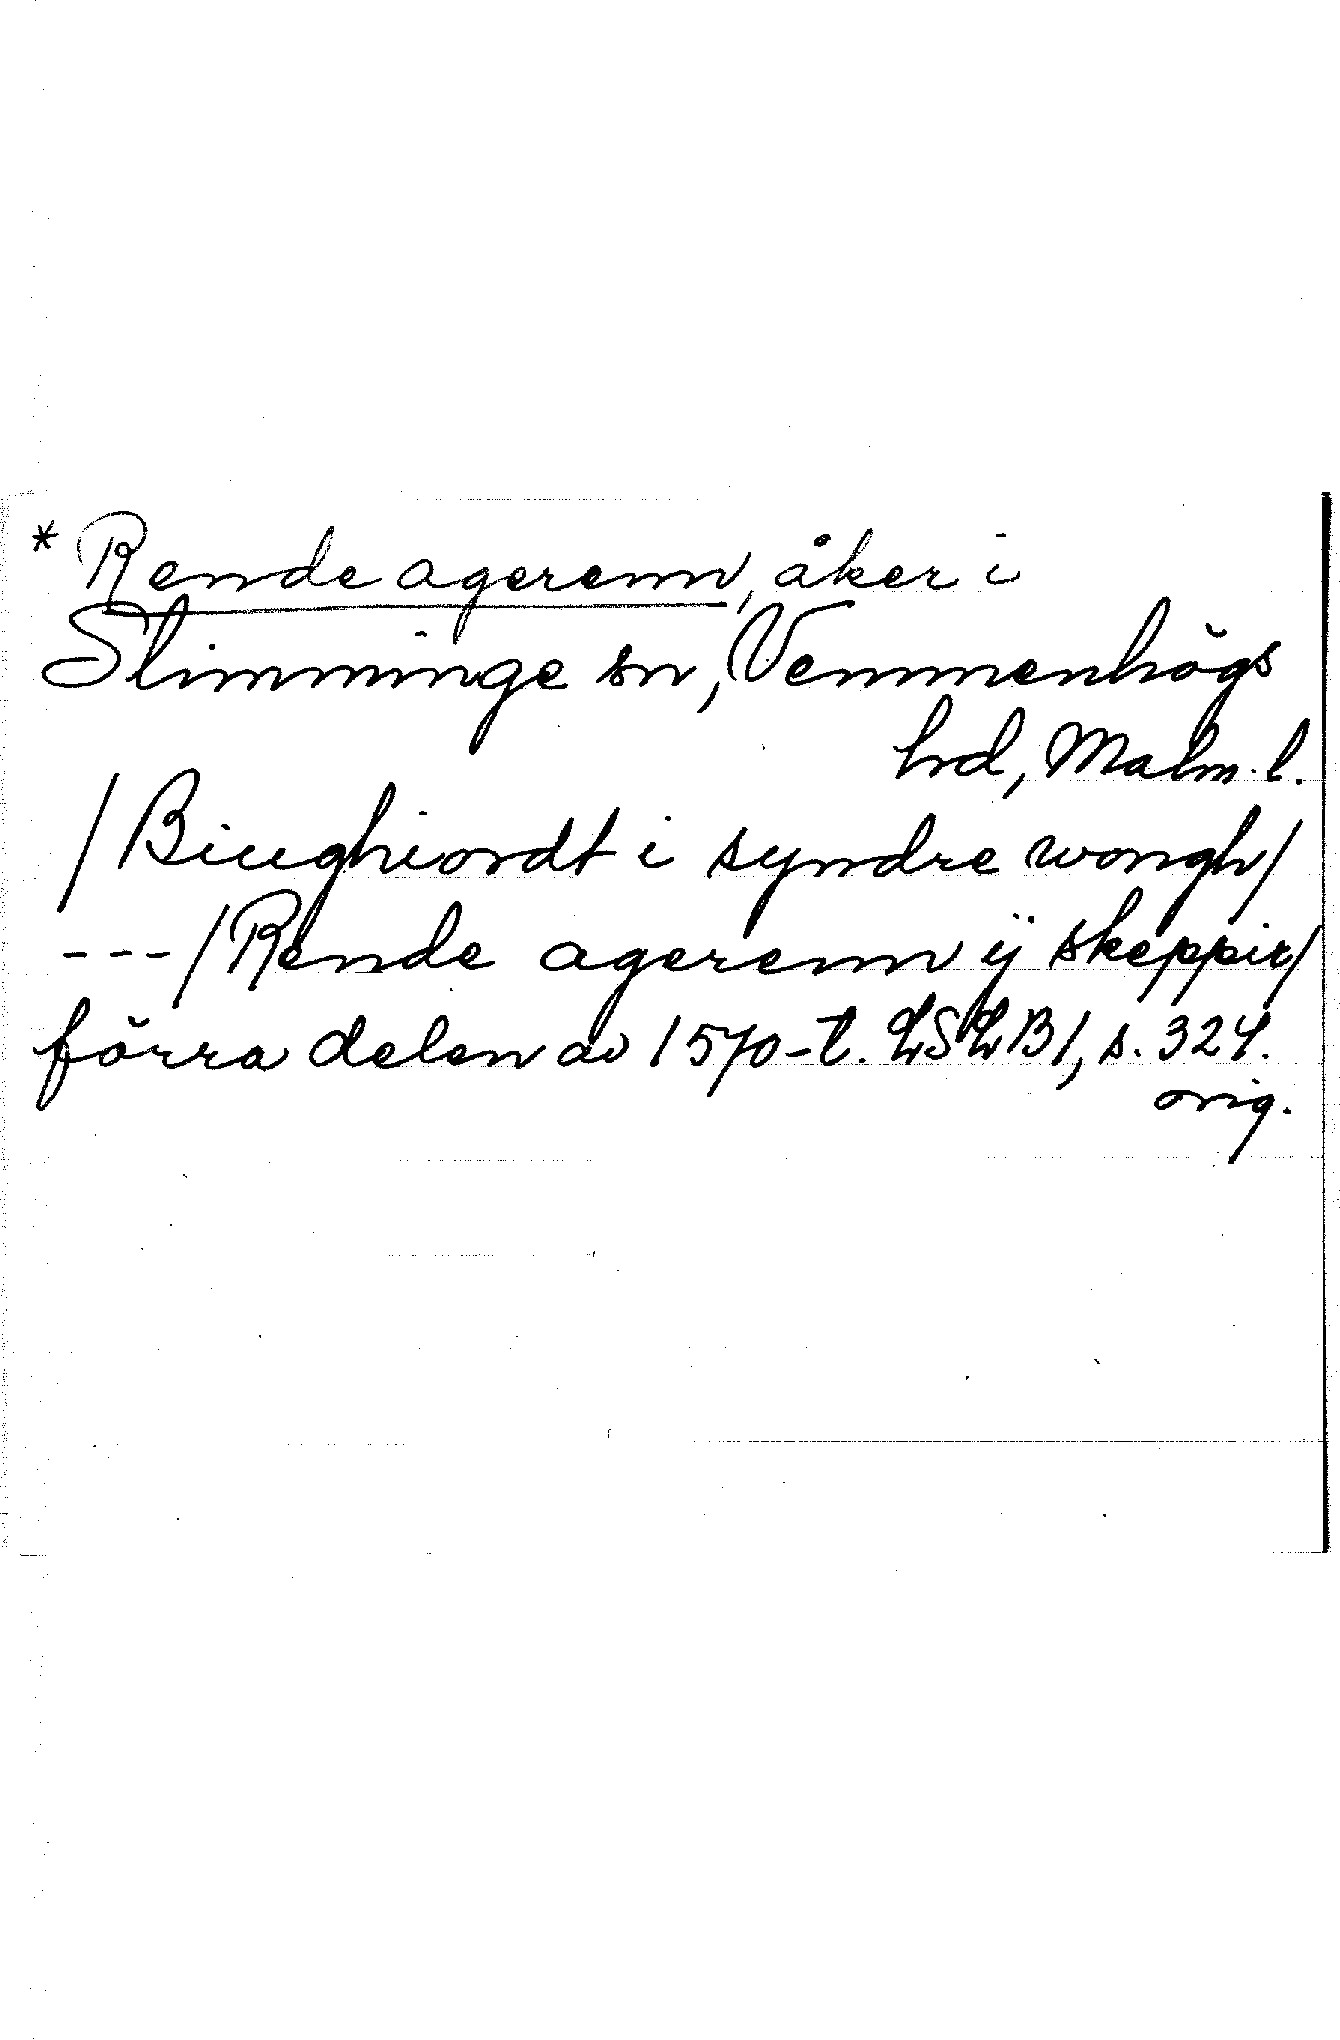 * Rende agerenn, åker i
Slimminge sn, Vemmenhögs
hrd, Malm. l.
/Biughiordt i syndre wongh/
---/Rende agerenn ij skeppir/
förra delen av 1570-t. LSLB1, s. 324.
orig.